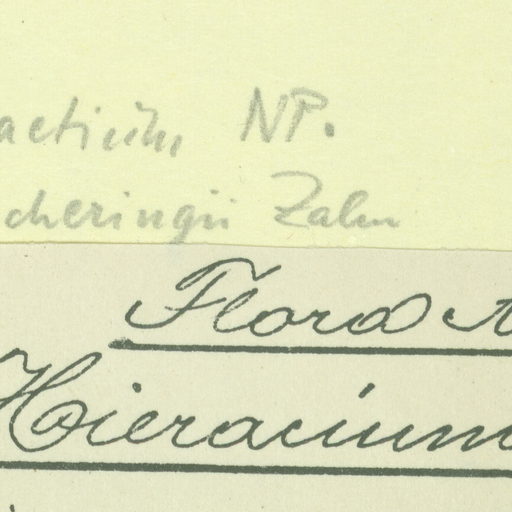 NP.
cheringii Zahn
Flora
Hieracium